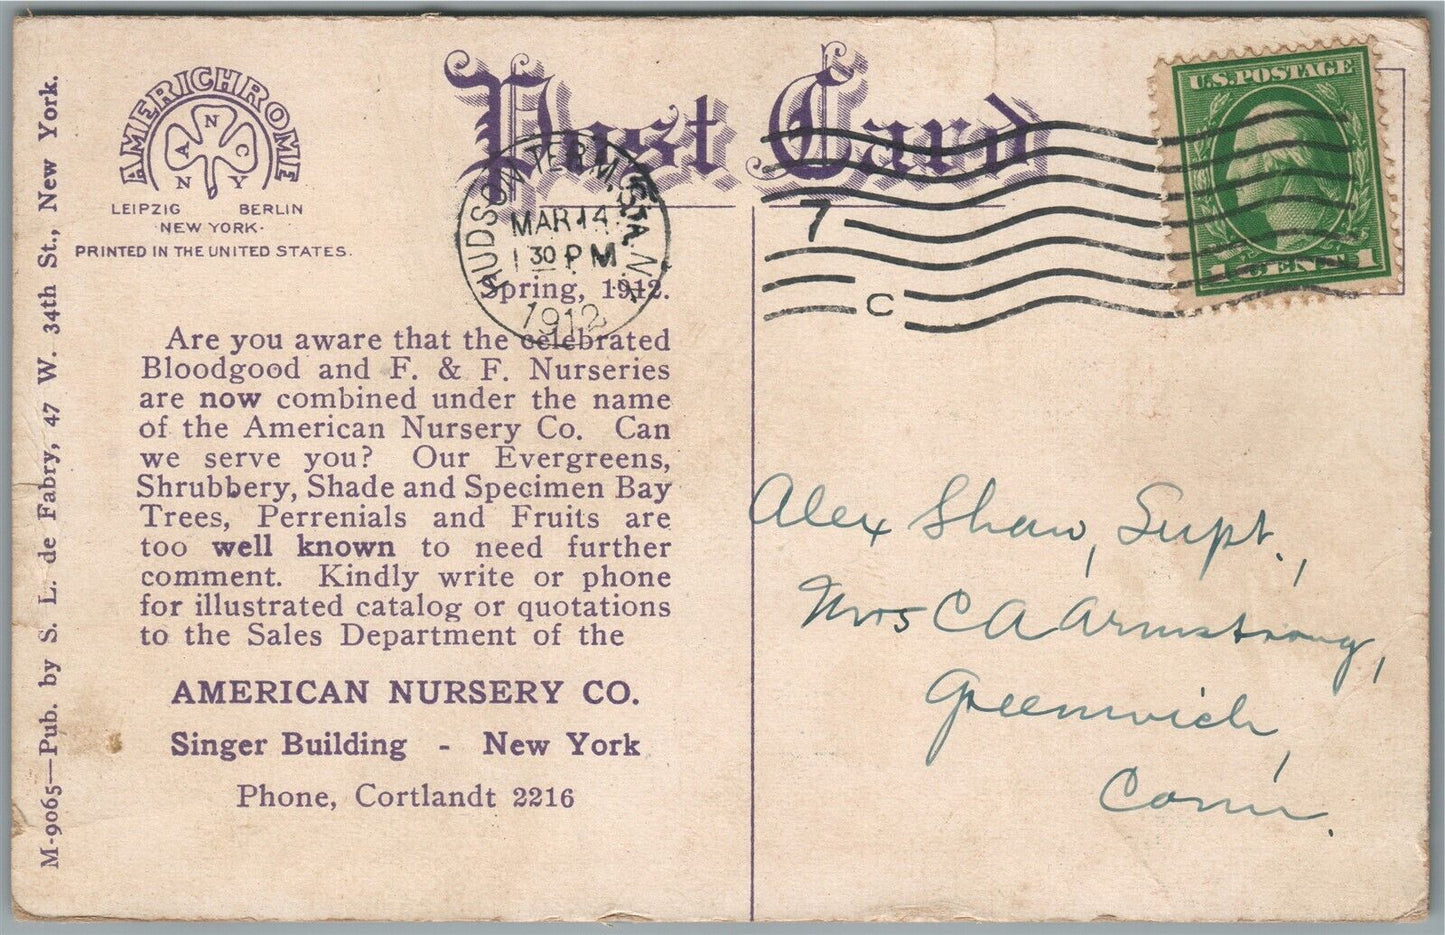 M-9065—Pub. by S. L. de Fabry, 47 W. 34th St., New York.
AMERICHROME
N
A C
N Y
LEIPZIG BERLIN
·NEW YORK·
PRINTED IN THE UNITED STATES.
Post Card
HUDSON TERM. STA. N.Y.
MAR 14
1 30 PM
1912
7
C
U.S. POSTAGE
1 CENT 1
Spring, 1912.
Are you aware that the celebrated
Bloodgood and F. & F. Nurseries
are now combined under the name
of the American Nursery Co. Can
we serve you? Our Evergreens,
Shrubbery, Shade and Specimen Bay
Trees, Perrenials and Fruits are
too well known to need further
comment. Kindly write or phone
for illustrated catalog or quotations
to the Sales Department of the
AMERICAN NURSERY CO.
Singer Building - New York
Phone, Cortlandt 2216
Alex Shaw, Supt.,
Mrs C A Armstrong,
Greenwich,
Conn.